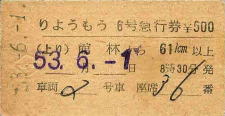 りようもう 6号急行券 ¥500
(上り) 館林から 61km以上
53. 6. -1 8時30分発
車両 2 号車 座席 36 番
53. 6. -1.